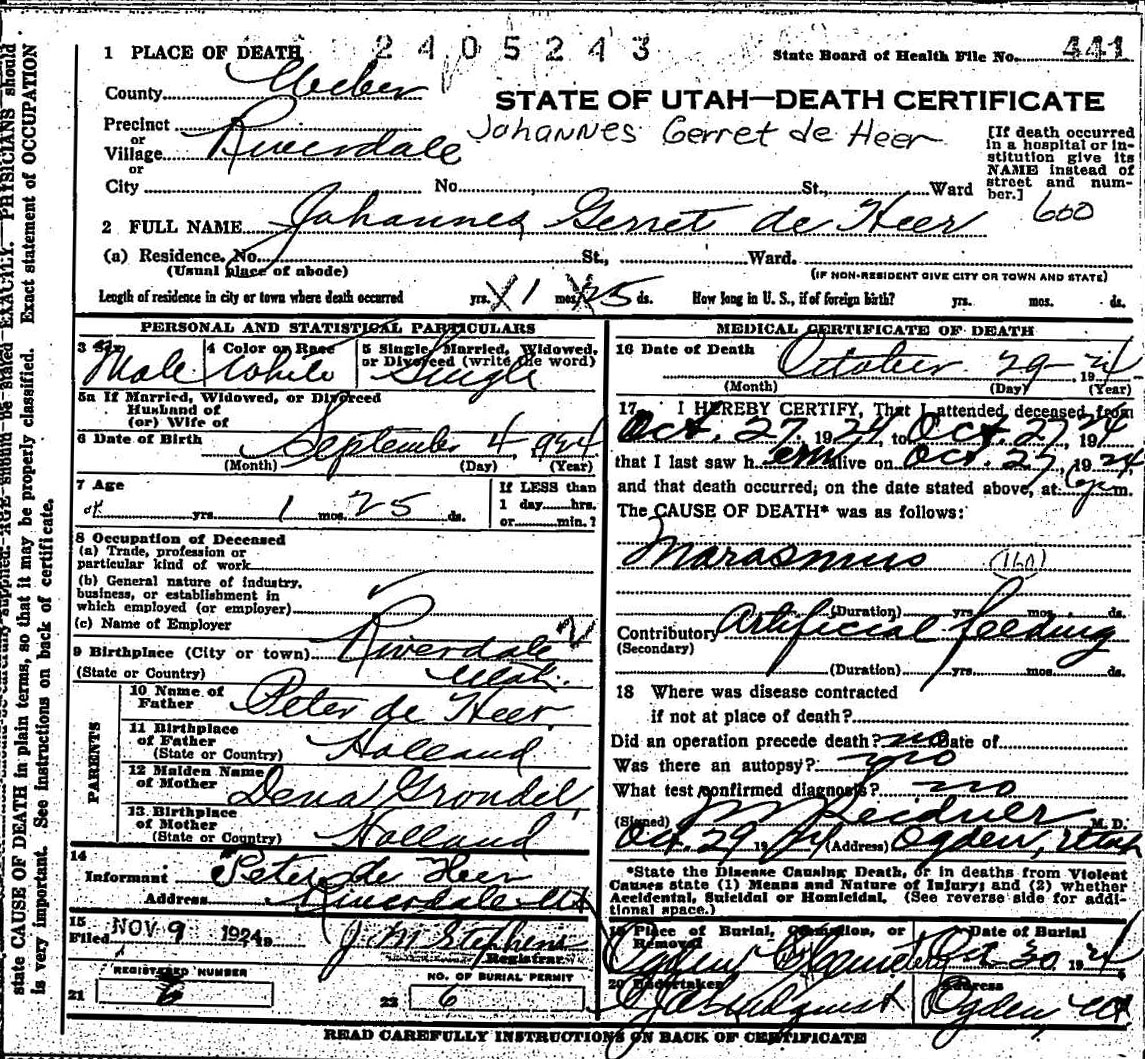 2405243
1 PLACE OF DEATH
State Board of Health File No. 441
County Weber
STATE OF UTAH—DEATH CERTIFICATE
Johannes Gerret de Heer
Precinct
or
Village Riverdale
or
City No. St., Ward
[If death occurred
in a hospital or in-
stitution give its
NAME instead of
street and num-
ber.]
600
2 FULL NAME Johannes Gerret de Heer
(a) Residence. No. St., Ward.
(Usual place of abode) (IF NON-RESIDENT GIVE CITY OR TOWN AND STATE)
Length of residence in city or town where death occurred yrs. 1 mos. 25 ds. How long in U. S., if of foreign birth? yrs. mos. ds.
PERSONAL AND STATISTICAL PARTICULARS
3 Sex Male
4 Color or Race White
5 Single, Married, Widowed,
or Divorced (write the word)
Single
5a If Married, Widowed, or Divorced
Husband of
(or) Wife of
6 Date of Birth September 4, 1924
(Month) (Day) (Year)
7 Age
yrs. 1 mos. 25 ds.
If LESS than
1 day hrs.
or min.?
8 Occupation of Deceased
(a) Trade, profession or
particular kind of work
(b) General nature of industry,
business, or establishment in
which employed (or employer)
(c) Name of Employer
9 Birthplace (City or town) Riverdale
(State or Country) Utah.
PARENTS
10 Name of
Father Peter de Heer
11 Birthplace
of Father
(State or Country) Holland
12 Maiden Name
of Mother Dena Grondel
13 Birthplace
of Mother
(State or Country) Holland
14
Informant Peter de Heer
Address Riverdale Ut
15
Filed NOV 9 1924 19 J M Stephens
Registrar
REGISTERED NUMBER
21 6
NO. OF BURIAL PERMIT
22 6
MEDICAL CERTIFICATE OF DEATH
16 Date of Death October 29 1924
(Month) (Day) (Year)
17 I HEREBY CERTIFY, That I attended deceased from
Oct. 27, 1924, to Oct. 27, 1924
that I last saw h em alive on Oct. 27, 1924,
and that death occurred, on the date stated above, at 6 p m.
The CAUSE OF DEATH* was as follows:
Marasmus (160)
(Duration) yrs. mos. ds.
Contributory Artificial feeding
(Secondary)
(Duration) yrs. mos. ds.
18 Where was disease contracted
if not at place of death?
Did an operation precede death? no Date of
Was there an autopsy? no
What test confirmed diagnosis? no
(Signed) M. D.
Oct. 29 1924 (Address) Ogden, Utah
*State the Disease Causing Death, or in deaths from Violent
Causes state (1) Means and Nature of Injury; and (2) whether
Accidental, Suicidal or Homicidal. (See reverse side for addi-
tional space.)
19 Place of Burial, Cremation, or
Removal
Ogden
Date of Burial
Oct 30 1924
20 Undertaker
Address
Ogden, Ut
READ CAREFULLY INSTRUCTIONS ON BACK OF CERTIFICATE
AGE should be stated EXACTLY. PHYSICIANS should
state CAUSE OF DEATH in plain terms, so that it may be properly classified. Exact statement of OCCUPATION
is very important. See instructions on back of certificate.